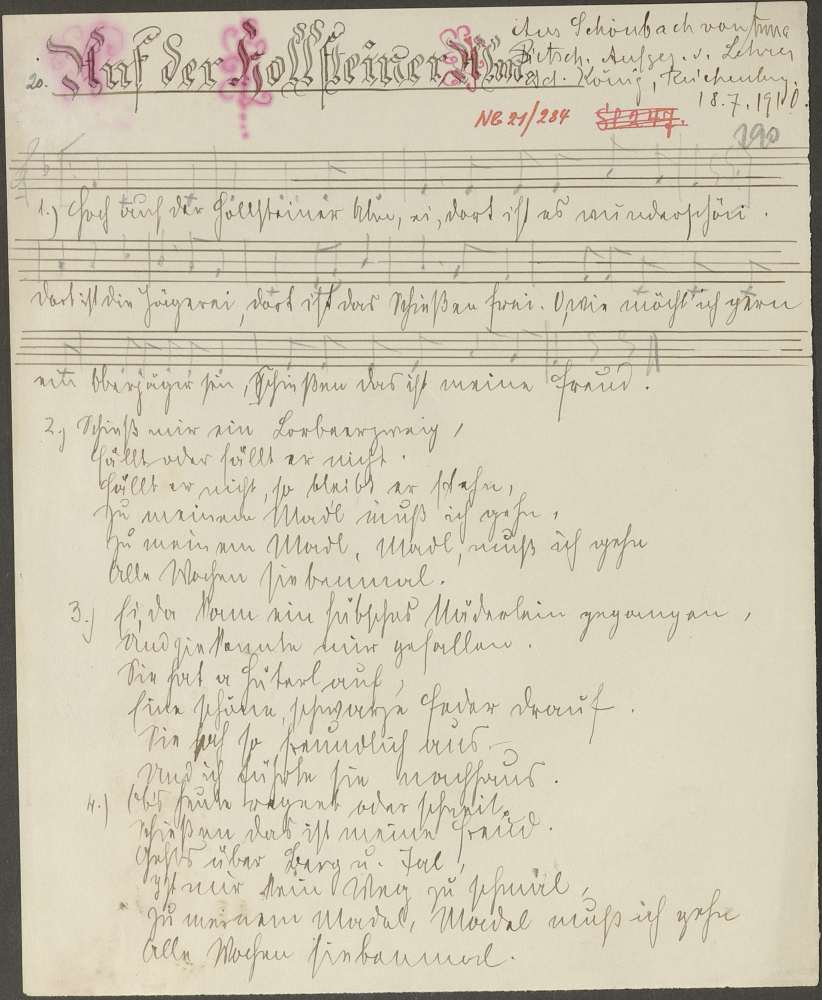 20. Auf der Hollsteiner Alm.
Aus Schönbach von Anna
Pietsch. Aufgez. v. Lehrer
Ad. König, Reichenberg.
18.7.1910.
NB 21/284
390
1.) Hoch auf der Höllsteiner Alm, ei, dort ist es wunderschön.
dort ist die Jägerei, dort ist das Schießen frei. O, wie möcht' ich gern
ein Oberjäger sein, Schießen das ist meine Freud.
2.) Schieß mir ein Lorbeerzweig,
Fällt oder fällt er nicht.
Fällt er nicht, so bleibt er stehn,
Zu meinem Madl muß ich gehn,
Zu meinem Madl, Madl, muß ich gehn
Alle Wochen siebenmal.
3.) Ei, da kam ein hübsches Mäderlein gegangen,
Und sie konnte mir gefallen.
Sie hat a Hüterl auf,
Eine schöne, schwarze Feder drauf.
Sie sah so freundlich aus –
Und ich führte sie nachhaus.
4.) Ob's heute regnet oder schneit,
Schießen das ist meine Freud.
Geht's über Berg u. Tal,
Ist mir kein Weg zu schmal,
Zu meinem Madel, Madel muß ich gehn
Alle Wochen siebenmal.